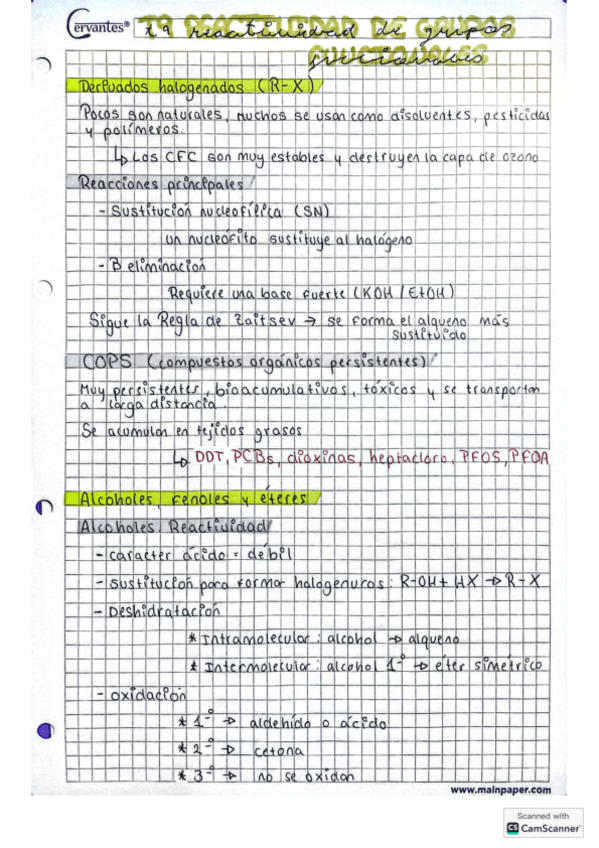 Cervantes®
T9 REACTIVIDAD DE GRUPOS
FUNCIONALES
Derivados halogenados (R-X)
Pocos son naturales, muchos se usan como disolventes, pesticidas
y polímeros.
↳ Los CFC son muy estables y destruyen la capa de ozono
Reacciones principales
- Sustitución nucleofílica (SN)
un nucleófito sustituye al halógeno
- B eliminación
Requiere una base fuerte (KOH / EtOH)
Sigue la Regla de Zaitsev → se forma el alqueno más
sustituido
COPS (compuestos orgánicos persistentes)
Muy persistentes, bioacumulativos, tóxicos y se transportan
a larga distancia.
Se acumulan en tejidos grasos
↳ DDT, PCBs, dioxinas, heptacloro, PFOS, PFOA
Alcoholes, fenoles y éteres
Alcoholes. Reactividad
- caracter ácido = débil
- sustitución para formar halogenuros: R-OH + HX → R-X
- Deshidratación
* Intramolecular: alcohol → alqueno
* Intermolecular: alcohol 1º → éter simétrico
- oxidación
* 1º → aldehído o ácido
* 2º → cetona
* 3º → no se oxidan
www.mainpaper.com
Scanned with
CS CamScanner